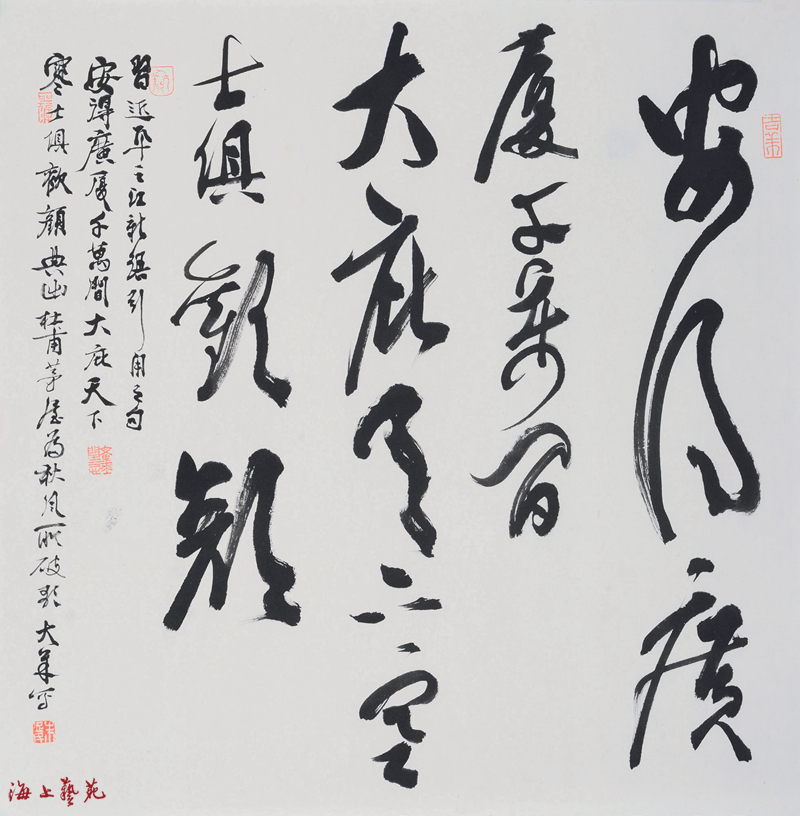 安得廣
厦千萬間
大庇天下寒
士俱歡顔
習近平之江新語引用之句
安得廣厦千萬間大庇天下
寒士俱歡顔典出杜甫茅屋為秋風所破歌 大年写
海上藝苑